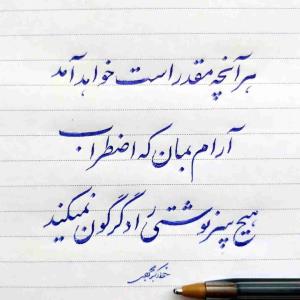 هر آنچه مقدر است خواهد آمد
آرام بمان که اضطراب
هیچ سرنوشتی را دگرگون نمیکند